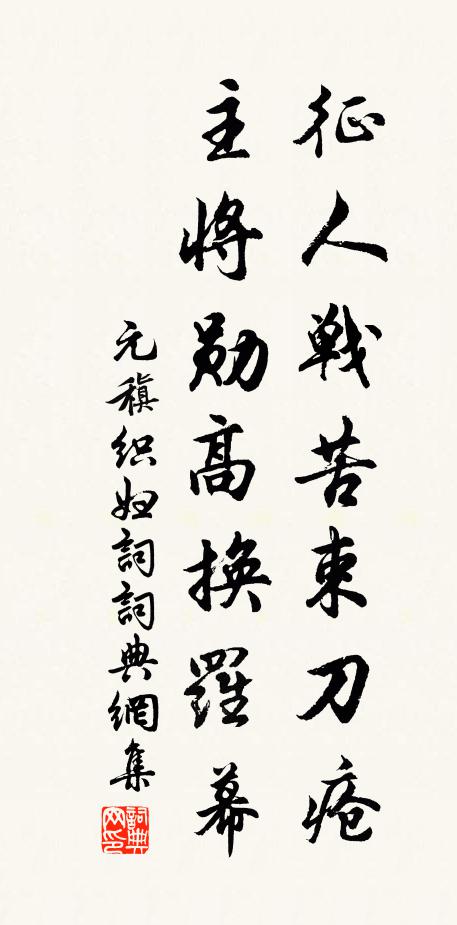 征人戰苦束刀瘡
主將勛高換羅幕
元稹织妇詞詞典網集
詞典网印